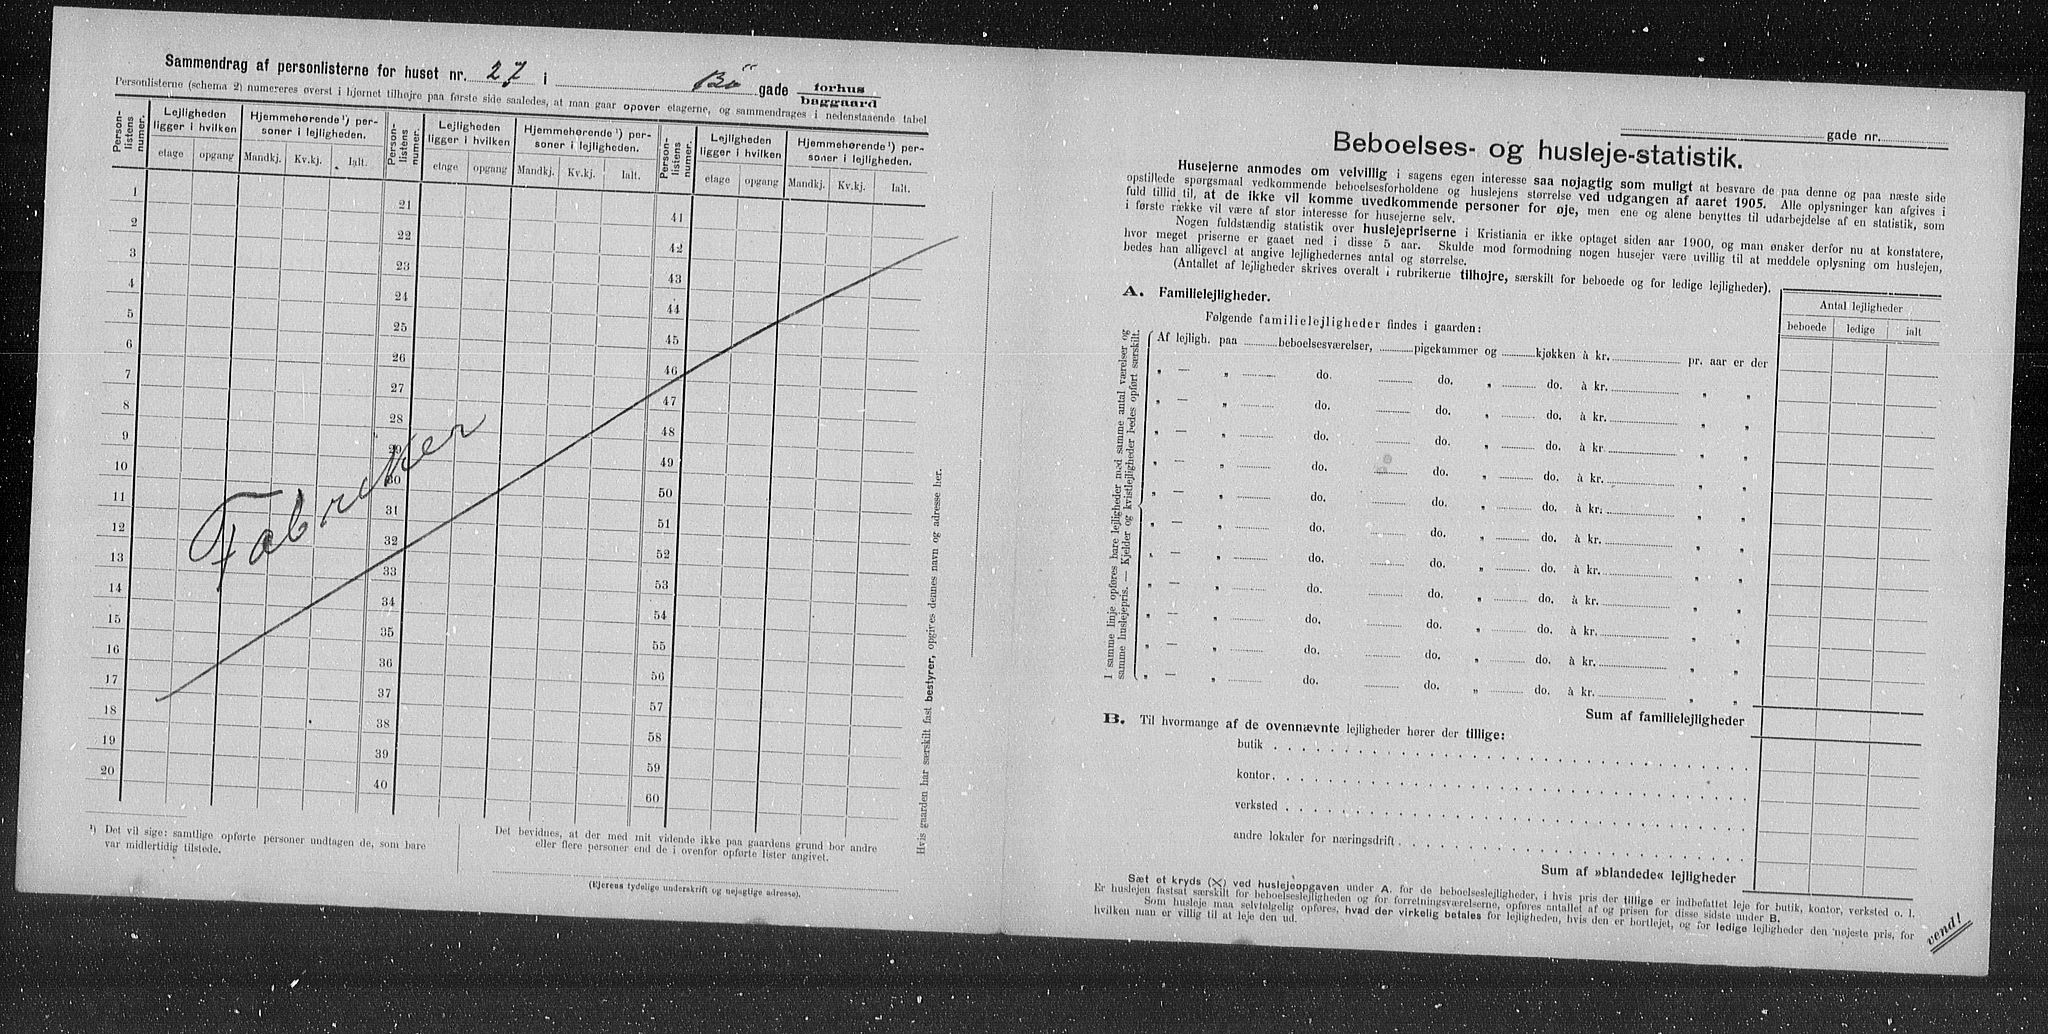 Sammendrag af personlisterne for huset nr. 27 i Bö gade forhus
baggaard
Personlisterne (schema 2) numereres øverst i hjørnet tilhøjre paa første side saaledes, at man gaar opover etagerne, og sammendrages i nedenstaaende tabel
Person-listens numer. Lejligheden ligger i hvilken Hjemmehørende ¹) personer i lejligheden. Person-listens numer. Lejligheden ligger i hvilken Hjemmehørende ¹) personer i lejligheden. Person-listens numer. Lejligheden ligger i hvilken Hjemmehørende ¹) personer i lejligheden.
etage opgang Mandkj. Kv.kj. Ialt. etage opgang Mandkj. Kv.kj. Ialt. etage opgang Mandkj. Kv.kj. Ialt.
1 21 41
2 22 42
3 23 43
4 24 44
5 25 45
6 26 46
7 27 47
8 28 48
9 29 49
10 30 50
11 31 51
12 32 52
13 33 53
14 34 54
15 35 55
16 36 56
17 37 57
18 38 58
19 39 59
20 40 60
Fabrikker
¹) Det vil sige: samtlige opførte personer undtagen de, som bare
var midlertidig tilstede.
Det bevidnes, at der med mit vidende ikke paa gaardens grund bor andre
eller flere personer end de i ovenfor opførte lister angivet.
(Ejerens tydelige underskrift og nøjagtige adresse).
Hvis gaarden har særskilt fast bestyrer, opgives dennes navn og adresse her.
gade nr.
Beboelses- og husleje-statistik.
Husejerne anmodes om velvillig i sagens egen interesse saa nøjagtig som muligt at besvare de paa denne og paa næste side
opstillede spørgsmaal vedkommende beboelsesforholdene og huslejens størrelse ved udgangen af aaret 1905. Alle oplysninger kan afgives i
fuld tillid til, at de ikke vil komme uvedkommende personer for øje, men ene og alene benyttes til udarbejdelse af en statistik, som
i første række vil være af stor interesse for husejerne selv.
Nogen fuldstændig statistik over huslejepriserne i Kristiania er ikke optaget siden aar 1900, og man ønsker derfor nu at konstatere,
hvor meget priserne er gaaet ned i disse 5 aar. Skulde mod formodning nogen husejer være uvillig til at meddele oplysning om huslejen,
bedes han alligevel at angive lejlighedernes antal og størrelse.
(Antallet af lejligheder skrives overalt i rubrikerne tilhøjre, særskilt for beboede og for ledige lejligheder).
A. Familielejligheder.
Følgende familielejligheder findes i gaarden:
Antal lejligheder
beboede ledige ialt
I samme linje opføres bare lejligheder med samme antal værelser og
samme huslejepris. — Kjelder og kvistlejligheder bedes opført særskilt.
Af lejligh. paa beboelsesværelser, pigekammer og kjøkken à kr. pr. aar er der
„ — „ do. do. „ do. à kr. „ „
„ — „ do. do. „ do. à kr. „ „
„ — „ do. do. „ do. à kr „ „
„ — „ do. do. „ do. à kr. „ „
„ — „ do. do. „ do. à kr. „ „
„ — „ do. do. „ do. à kr. „ „
„ — „ do. do. „ do. à kr. „ „
„ — „ do. do. „ do. à kr. „ „
„ — „ do. do. „ do. à kr. „ „
„ — „ do. do. „ do. à kr. „ „
„ — „ do. do. „ do. à kr. „ „
Sum af familielejligheder
B. Til hvormange af de ovennævnte lejligheder hører der tillige:
butik
kontor
verksted
andre lokaler for næringsdrift
Sum af »blandede« lejligheder
Sæt et kryds (X) ved huslejeopgaven under A. for de beboelseslejligheder, i hvis pris der tillige er indbefattet leje for butik, kontor, verksted o. l.
Er huslejen fastsat særskilt for beboelseslejligheden og for forretningsværelserne, opføres antallet af og prisen for disse sidste under B.
Som husleje maa selvfølgelig opføres, hvad der virkelig betales for lejligheden, hvis den er bortlejet, og for ledige lejligheder den nøjeste pris, for
hvilken man er villig til at leje den ud.
vend!